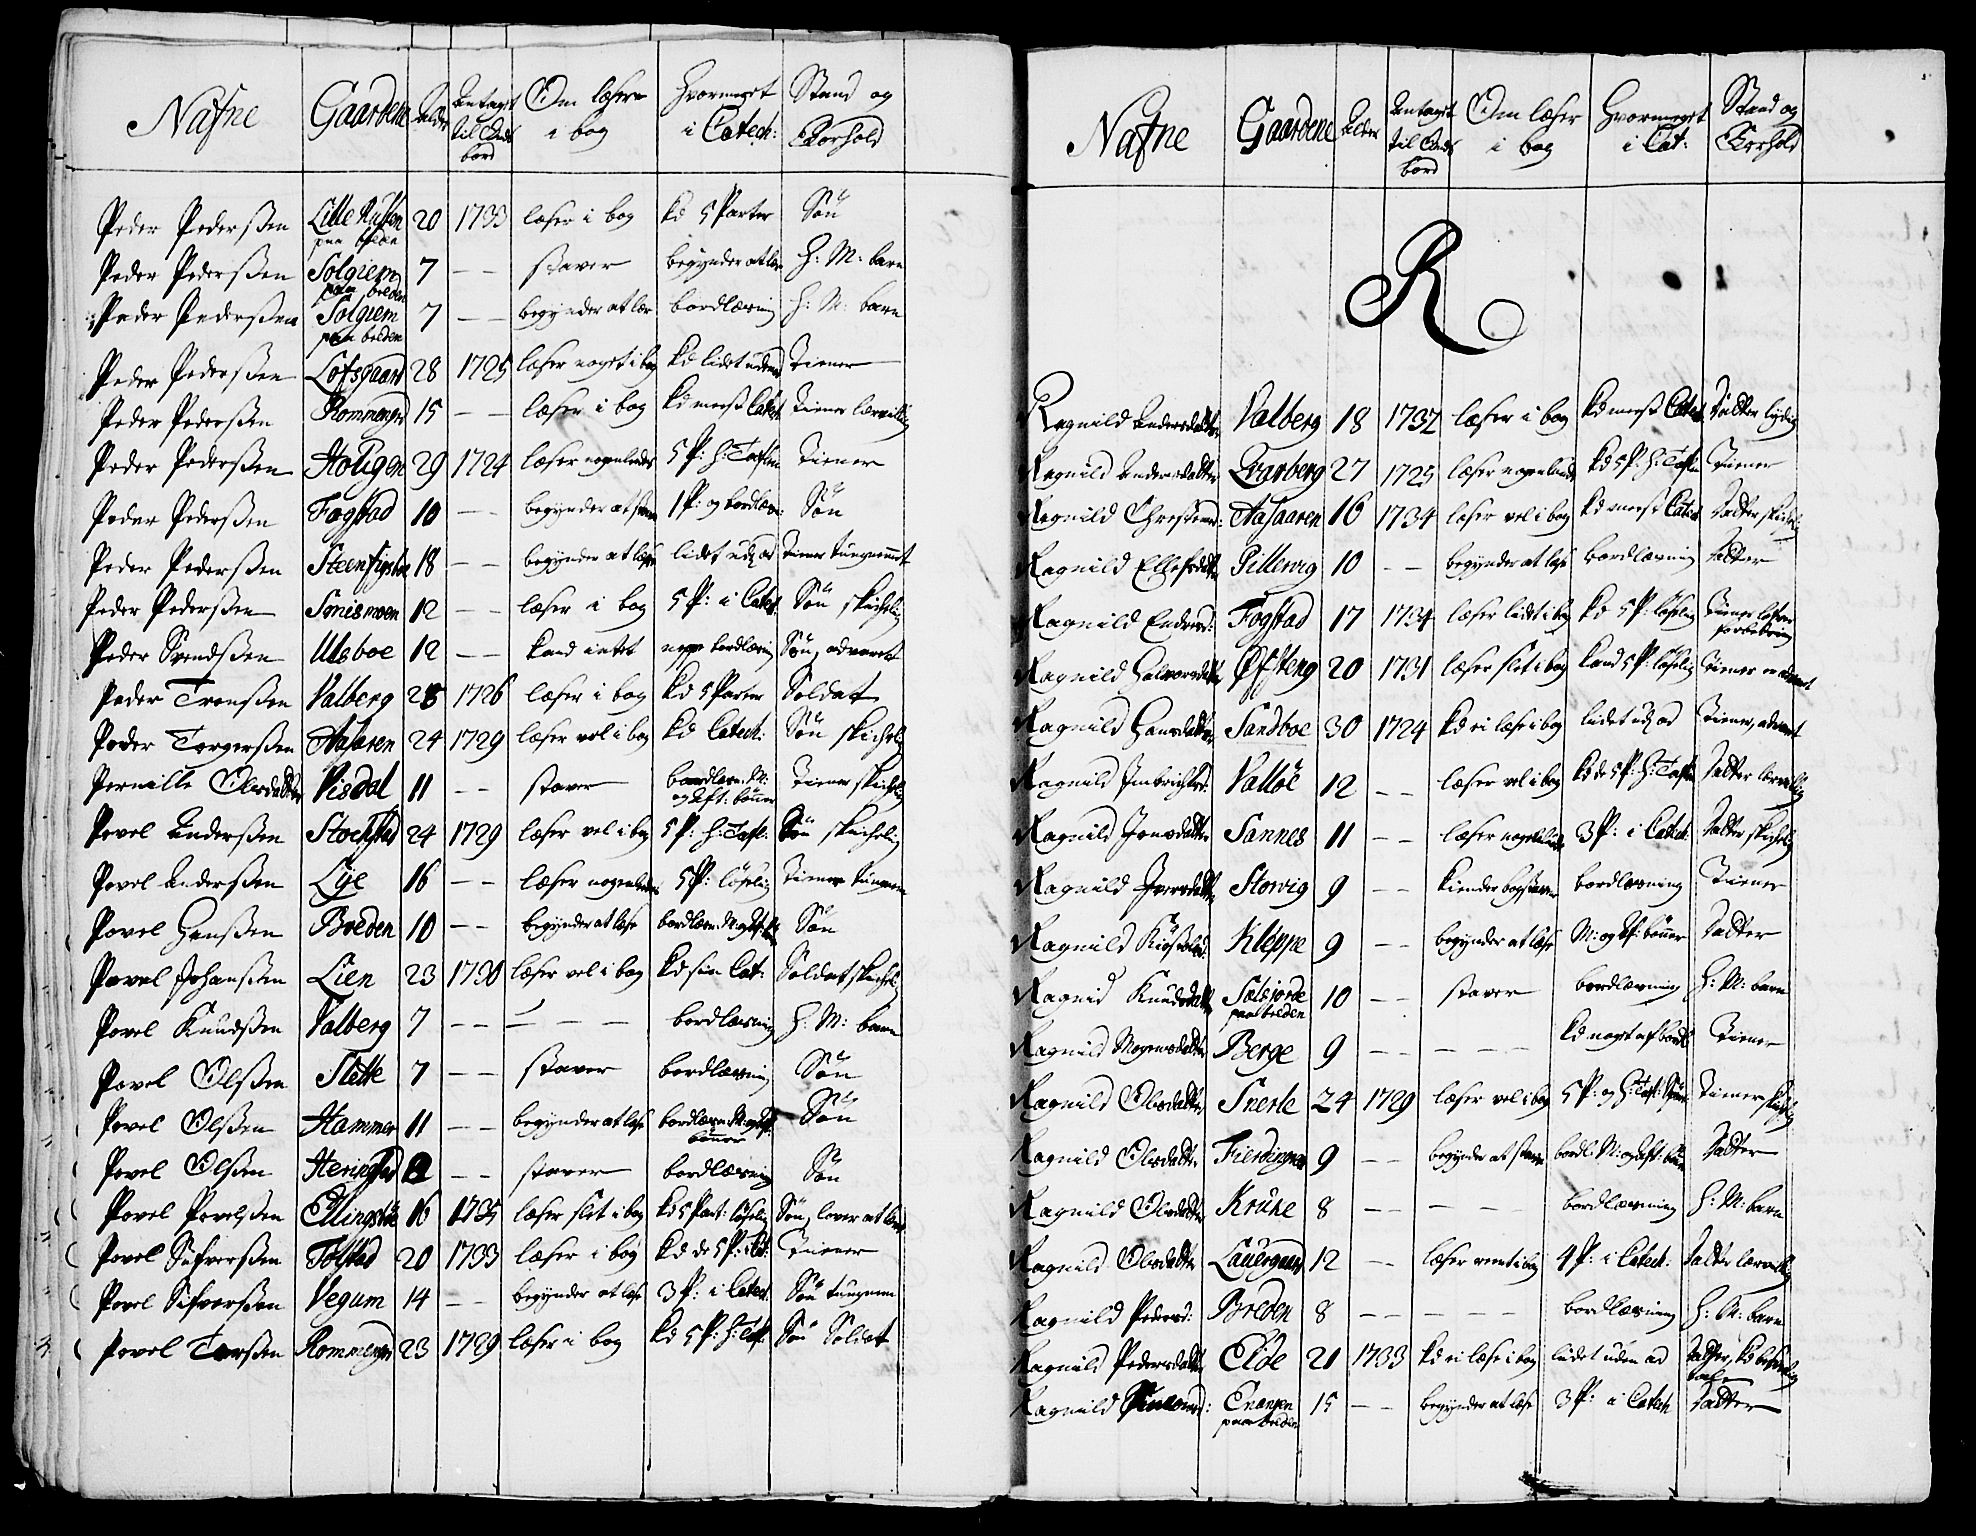 Nafne Gaardene Alder Antaget til Guds bord Om læser i bog Hvormeget i Catech: Stand og Forhold
Peder Pederßen Lille Rusten paa breden 20 1733 læser i bog kd 5 Parter Søn
Peder Pederßen Solgiem paa breden 7 — — staver begynder at lær H: M: barn
Peder Pederßen Solgiem paa breden 7 — — begynder at lær bordlæsning H: M: barn
Peder Pederßen Lofsgaard 28 1725 læser noget i bog kd lidet uden Tiener
Peder Pederßen Rommengrd 15 — — læser i bog kd meest Catech Tiener lærvillig
Peder Pederßen Holigen 29 1724 læser nogenledes 5 P: H: Taflen Tiener
Peder Pederßen Fogstad 10 — — begynder at stave 1 P: og bordlæsn: Søn
Peder Pederßen 18 — — begynder at læse lidet ud ad Tiener tungnemmet
Peder Pederßen Snismoen 12 — — læser i bog 5 P: i Catech Søn skickelig
Peder Svendßen Ulsboe 12 — — kand intet neppe bordlæsning Søn, advaret
Peder Tronßen Valberg 28 1726 læser i bog kd 5 Parter Soldat
Peder Torgerßen Aasaren 24 1729 læser vel i bog kd Catech: Søn skickelig
Pernille Olesdatter Visdal 11 — — staver bordlæsn: M: og Aft: bønner Tiener skickelig
Povel Anderßen Stochstad 24 1729 læser vel i bog 5 P: H: Tafl: Søn skickelig
Povel Anderßen Lye 16 — — læser nogenledes 5 P: løselig Tiener tungnem
Povel Hanßen Breden 10 — — begynder at læse bordlæsn: M: og Aft: Søn
Povel Johanßen Lien 23 1730 læser vel i bog kd sin Cat: Soldat skickel:
Povel Knudßen Valberg 7 — — — — — bordlæsning H: M: barn
Povel Olßen Slette 7 — — staver bordlæsning Søn
Povel Olßen Hammer 11 — — begynder at læse bordlæsn: M: og Aft: bønner Søn
Povel Olßen Heringstad — — staver bordlæsning Søn
Povel Povelßen Ellingsbøe 16 1735 læser slet i bog kd 5 Part: løselig Søn, lover at lære
Povel Sifverßen Tolstad 20 1733 læser i bog kd de 5 P: i Cat: Tiener
Povel Sifverßen Vegum 14 — — begynder at læse 3 P: i Catech: Søn tungnem
Povel Torßen Rommengrd 23 1729 læser i bog kd 5 P: H: Tafl: Søn Soldat
Nafne Gaardene Alder Antaget til Guds bord Om læser i bog Hvormeget i Cat: Stand og Forhold
R
Ragnild Andersdatter Valberg 18 1732 læser i bog kd meest Catech Datter lydig
Ragnild Andersdatter Qvarberg 27 1725 læser nogenledes kd 5 P: H: Taflen Tiener
Ragnild Christens: Aasaaren 16 1734 læser vel i bog kd meest Catech Datter skickelig
Ragnild Ellefsdatter Pillervig 10 — — begynder at læse bordlæsning Datter
Ragnild Enders: Fogstad 17 1734 læser lidt i bog kd 5 P: løselig Tiener lofver forbedring
Ragnild Halvorsdatter Øfsteng 20 1731 læser slet i bog kand 5 P: løselig Tiener er advaret
Ragnild Hansdatter Sandboe 30 1724 kd ei læse i bog lidet ud ad Tiener, advaret
Ragnild Imbrichtsd: Valløe 12 — — læser vel i bog kd de 5 P: H: Taflen Datter lærvillig
Ragnild Jonsdatter Sannes 11 — — læser nogenledes 3 P: i Catech: Datter skickelig
Ragnild Iversdatter Storvig 9 — — kiender bogstaver bordlæsning Tiener
Ragnild Kiøstelsd: Kleppe 9 — — begynder at læse M: og Af: bønner Datter
Ragnid Knudsdatter Selsjorde paa breden 10 — — staver bordlæsning H: M: barn
Ragnild Mogensdatter Berge 9 — — — — — kd noget af bordl: Tiener
Ragnild Olesdatter Snerle 24 1729 læser vel i bog 5 P: og H: Tafl: Tiener skickelig
Ragnild Olesdatter Fierdingen 9 — — begynder at stave bordl: M: og Aft: bøn: Datter
Ragnild Olesdatter Kruke 8 — — — — — bordlæsning H: M: barn
Ragnild Olesdatter Lauergaard 12 — — læser rent i bog 4 P: i Catech: Datter lærvillig
Ragnild Pedersd: Breden 8 — — — — — bordlæsning H: M: barn
Ragnild Pedersdatter Eide 21 1733 kd ei læse i bog lidet uden ad
Ragnild paa breden 15 — — begynder at læse 3 P: i Catech Datter